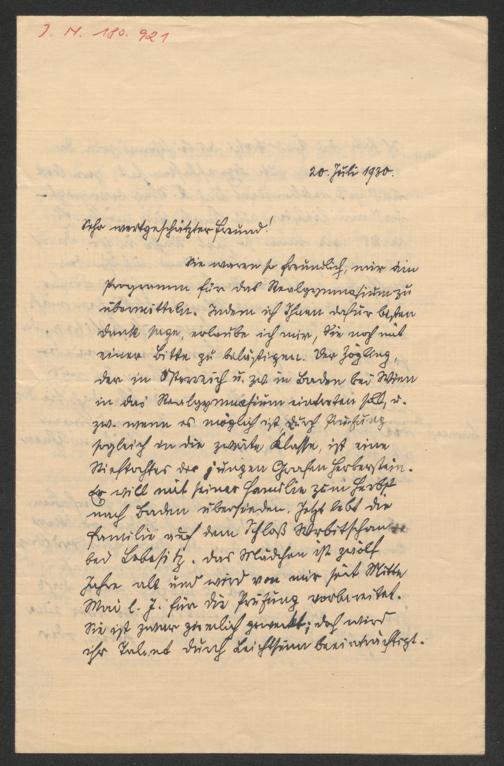 J. N. 180.921
20. Juli 1930.
Sehr wertgeschätzter Freund!
Sie waren so freundlich, mir ein
Programm für das Realgymnasium zu
übermitteln. Indem ich Ihnen dafür besten
Dank sage, erlaube ich mir, Sie noch mit
einer Bitte zu belästigen. Der Zögling,
der in Österreich u. zw. in Baden bei Wien
in das Realgymnasium eintreten soll, u.
zw. wenn es möglich ist, durch Prüfung
sogleich in die zweite Klasse, ist eine
Stieftochter des jungen Grafen Herberstein.
Er will mit seiner Familie zum Herbst
nach Baden übersiedeln. Jetzt lebt die
Familie auf dem Schloß
bei . Das Mädchen ist zwölf
Jahre alt und wird von mir seit Mitte
Mai l. J. für die Prüfung vorbereitet.
Sie ist zwar ziemlich geweckt; doch wird
ihr Talent durch Leichtsinn beeinträchtigt.